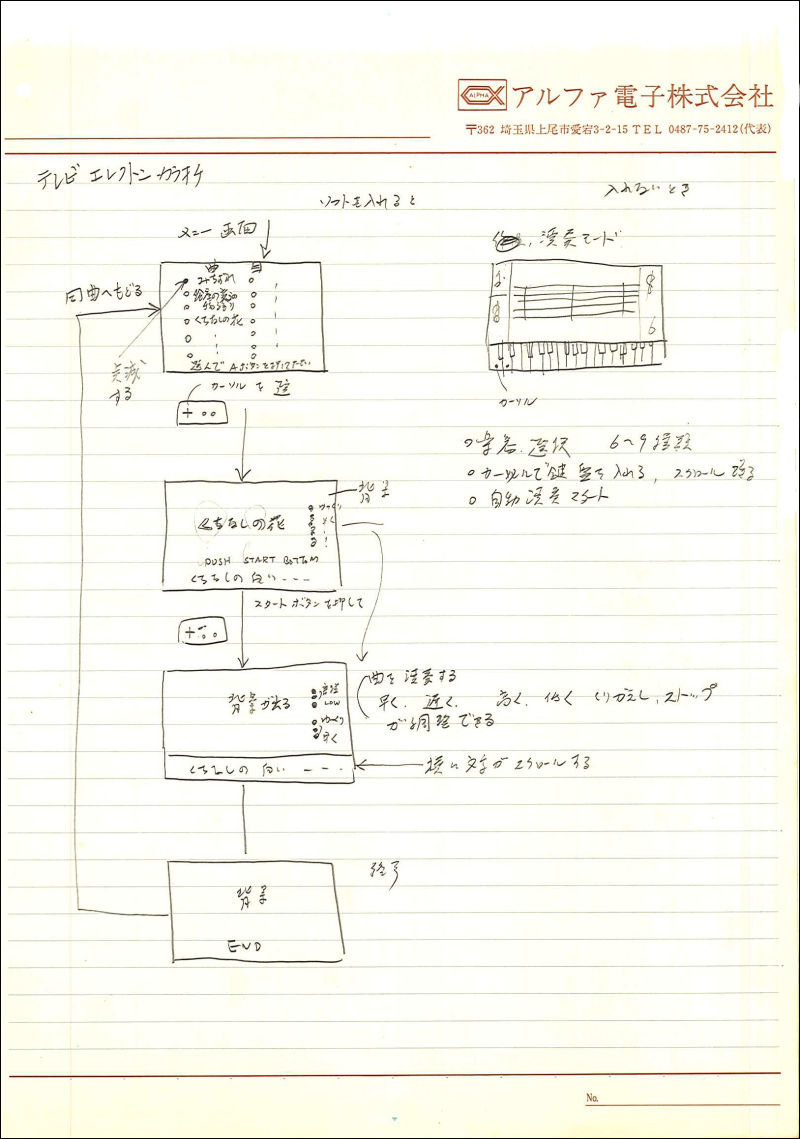 ALPHA アルファ電子株式会社
〒362 埼玉県上尾市愛宕3-2-15 TEL 0487-75-2412(代表)
テレビ エレクトーン カラオケ
ソフトを入れると
入れないとき
メニー画面
演奏モード
曲 目
みちずれ
くちなしの花
選んで Aボタンを押して下さい
同曲へもどる
点滅
する
カーソル を 選
カーソル
背景
くちなしの花
ゆっくり
早く
PUSH START BOTTOM
くちなしの白い---
スタートボタンを押して
音名 選択 6~9種類
カーソルで 鍵盤を入れる、スクロールする
自動演奏スタート
背景が出る
LOW
ゆっくり
早く
くちなしの 白い ---
曲を演奏する
早く. 遅く. 高く. 低く くりかえし、ストップ
が調整できる
横に文字がスクロールする
終了
背景
END
No.